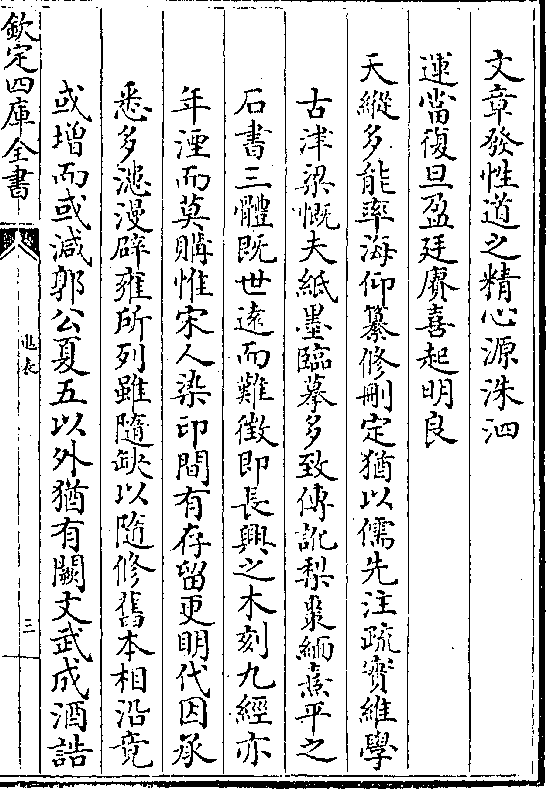 文章發性道之精心源洙泗
運當復旦盈廷賡喜起明良
天縱多能率海仰纂修刪定猶以儒先注疏實維學
古津梁慨夫紙墨臨摹多致傳訛梨棗緬熹平之
石書三體既世遠而難徵即長興之木刻九經亦
年湮而莫購惟宋人染印間有存留更明代因承
悉多漶漫辟雍所列雖隨缺以隨修舊本相沿竟
或增而或減郭公夏五以外猶有闕文武成酒誥
欽定四庫全書
進表
三